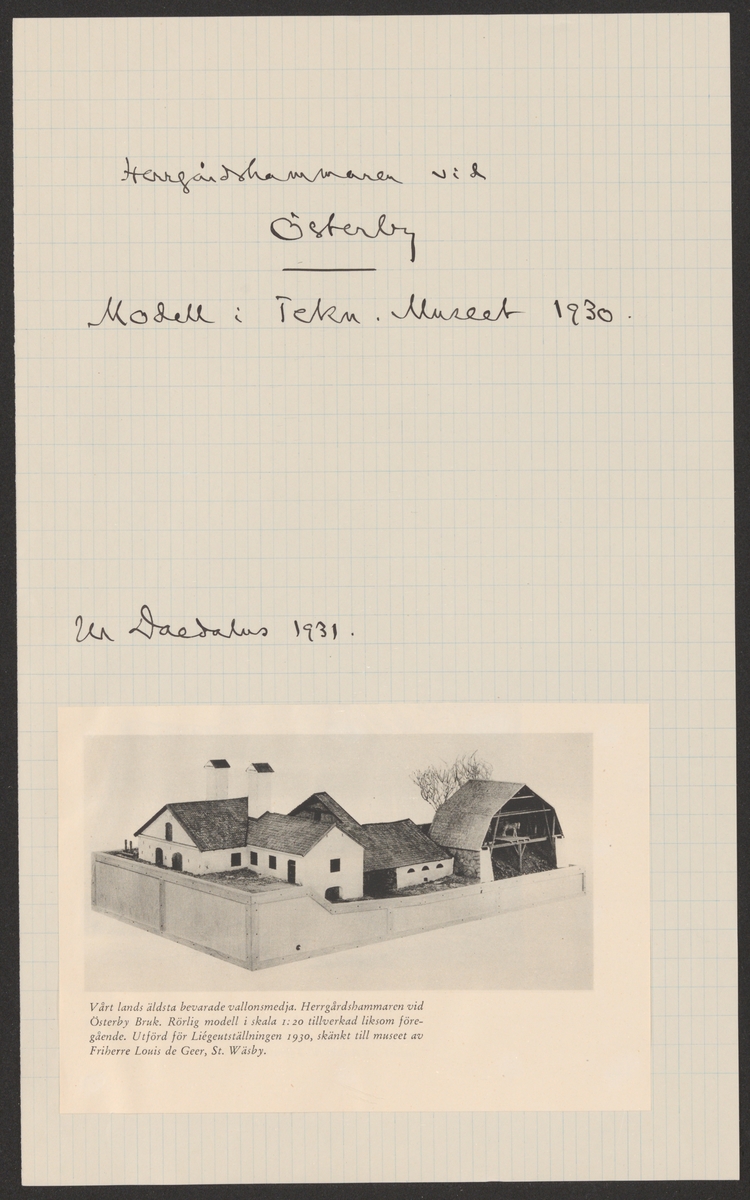 Herrgårdshammaren vid
Österby
Modell i Tekn. Museet 1930.
Ur Daedalus 1931.
Vårt lands äldsta bevarade vallonsmedja. Herrgårdshammaren vid
Österby Bruk. Rörlig modell i skala 1:20 tillverkad liksom före-
gående. Utförd för Liégeutställningen 1930, skänkt till museet av
Friherre Louis de Geer, St. Wäsby.